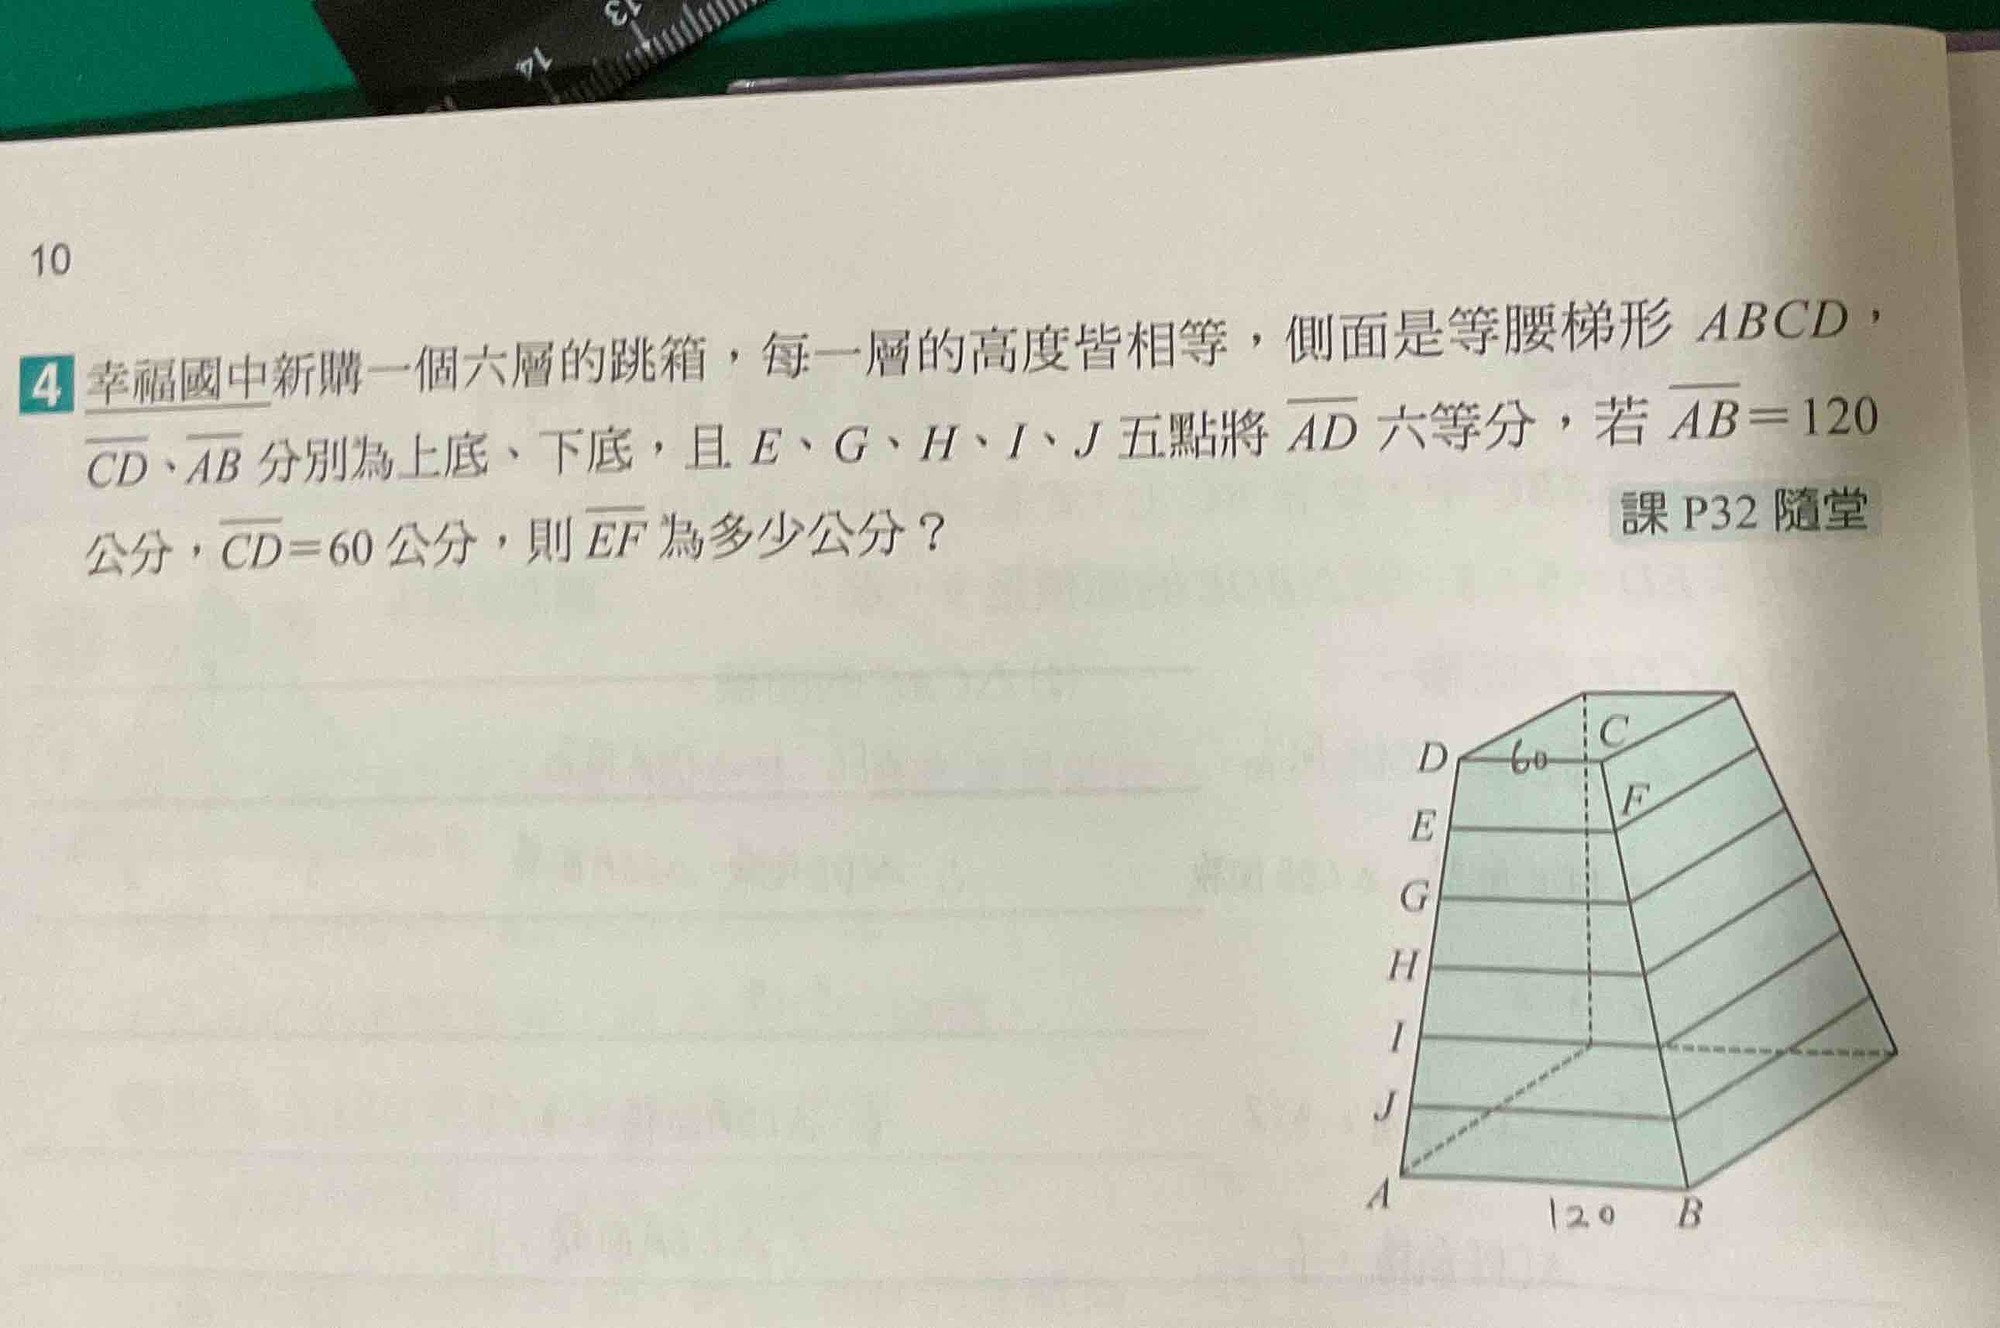 13
14
10
4 幸福國中新購一個六層的跳箱，每一層的高度皆相等，側面是等腰梯形 ABCD，
CD、AB 分別為上底、下底，且 E、G、H、I、J 五點將 AD 六等分，若 AB=120
公分，CD=60 公分，則 EF 為多少公分？
課 P32 隨堂
D
60
C
E
F
G
H
I
J
A
120
B